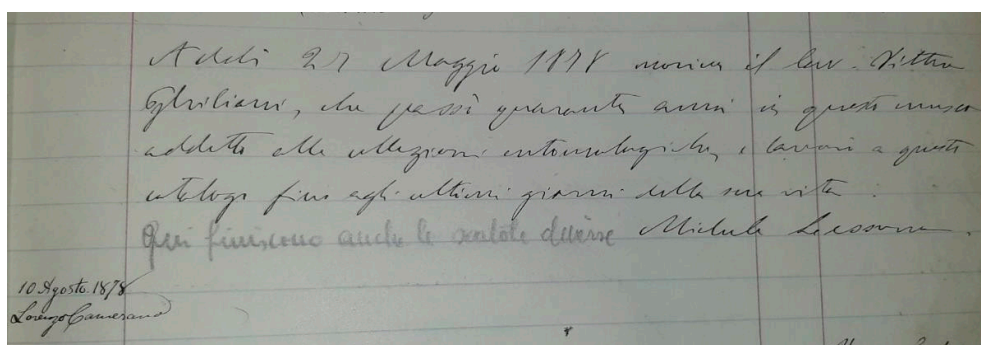 Addì 27 Maggio 1878 moriva il Cav. Vittore
Ghiliani, che passò quaranta anni in questo museo
addetto alle collezioni entomologiche, e lavorò a questo
catalogo fino agli ultimi giorni della sua vita.
Qui finiscono anche le scatole diverse Michele Lessona.
10 Agosto. 1878
Lorenzo Camerano